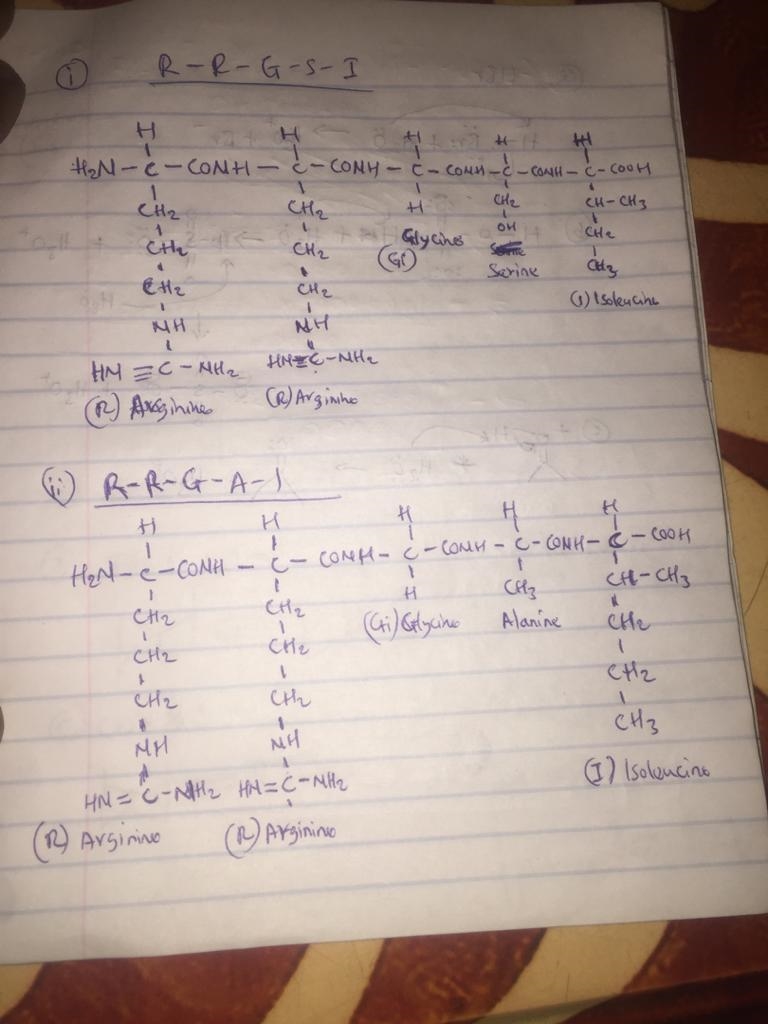 i R-R-G-S-I
H H H H H
H₂N-C-CONH-C-CONH-C-CONH-C-CONH-C-COOH
CH₂ CH₂ H CH₂ CH-CH₃
CH₂ CH₂ Glycine OH CH₂
(G) Serine CH₃
CH₂ CH₂ (I) Isoleucine
NH NH
HN≡C-NH₂ HN=C-NH₂
(R) Arginine (R) Arginine
ii R-R-G-A-I
H H H H H
H₂N-C-CONH-C-CONH-C-CONH-C-CONH-C-COOH
CH₂ CH₂ H CH₃ CH-CH₃
CH₂ CH₂ (G) Glycine Alanine CH₂
CH₂ CH₂ CH₂
NH NH CH₃
HN=C-NH₂ HN=C-NH₂ (I) Isoleucine
(R) Arginine (R) Arginine